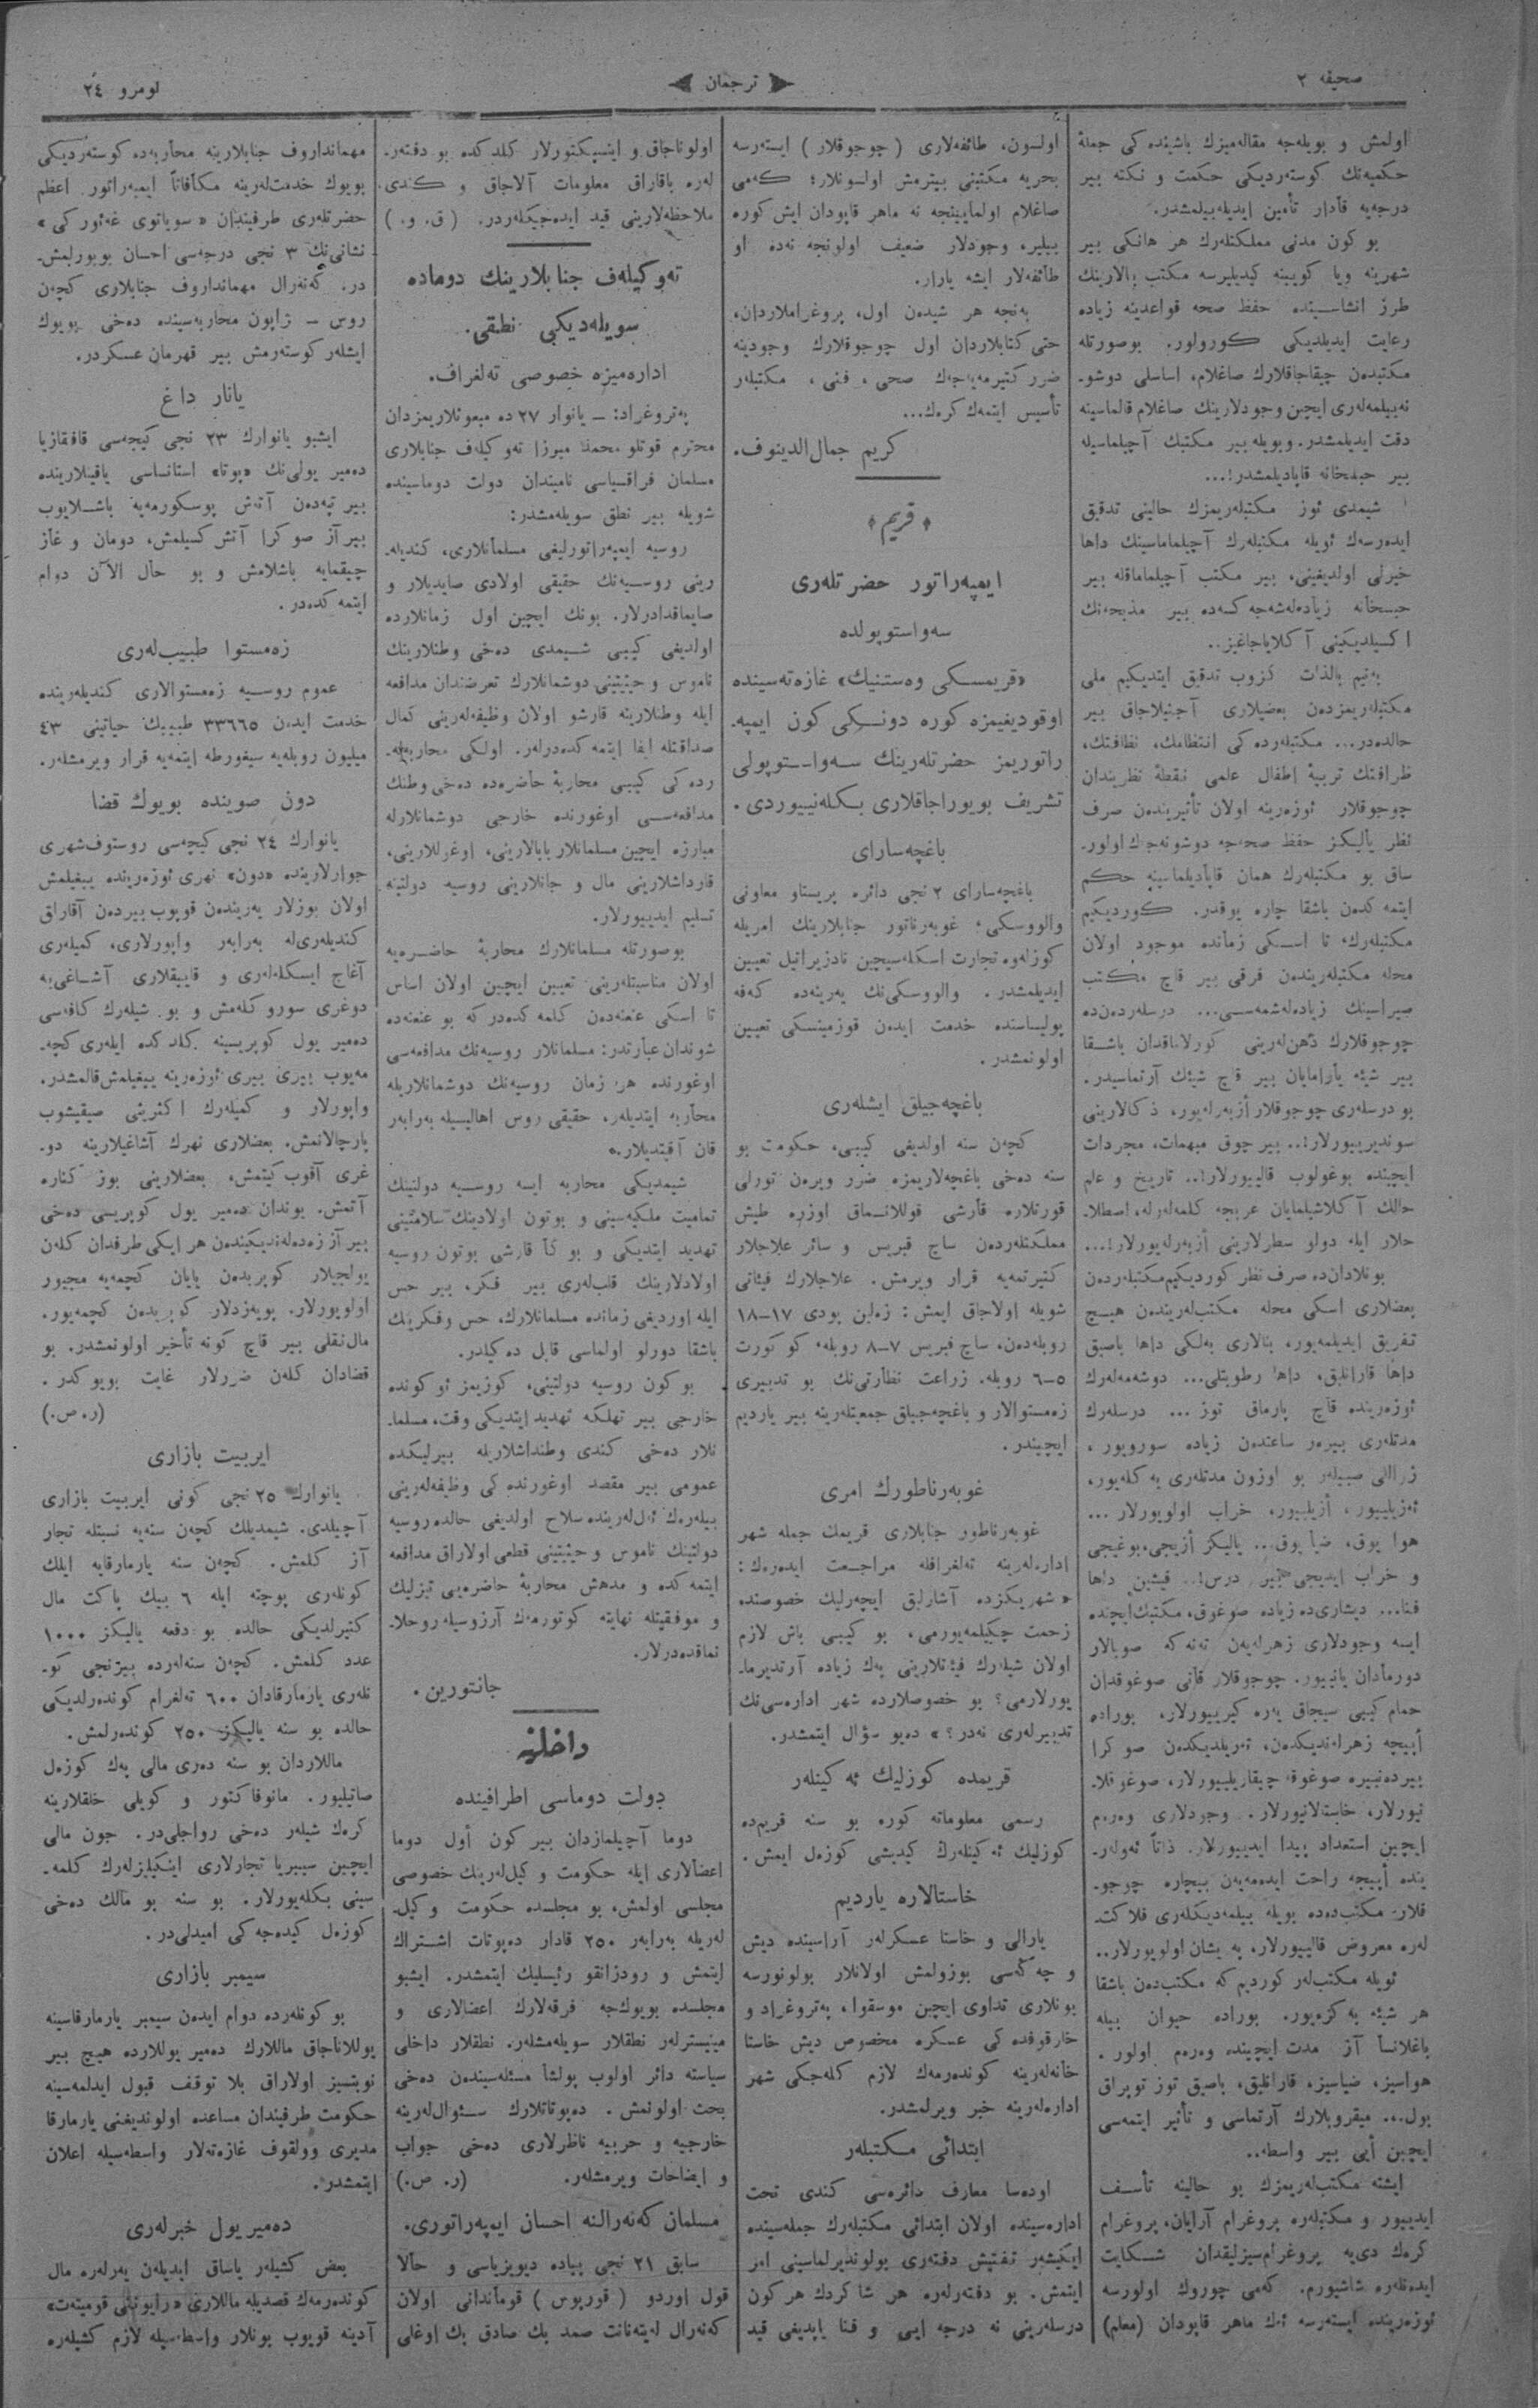 صحیفه ۲
ترجمان
نومرو ۲٤
اولمش و بویله‌جه مقاله‌میزك باشینده کی جملهٔ
حکمیه‌نك کوسته‌ردیکی حکمت و نکته بیر
درجه‌یه قادار تأمین ایدیله‌بیلمشدر.
بو کون مدنی مملکتلەرك هر هانکی بیر
شهرینه ویا کویینه کیدیلیرسه مکتب بنالارینك
طرز انشاسینده حفظ صحه قواعدینه زیاده
رعایت ایدیلدیکی کورولور. بوصورتله
مکتبدن چیقاجاقلارك صاغلام، اساسلی دوشو-
نه‌بیلمه‌لەری ایچین وجودلارینك صاغلام قالماسینه
دقت ایدیلمشدر. وبویله بیر مکتبك آچیلماسیله
بیر حبسخانه قاپادیلمشدر!...
شیمدی ئوز مکتبله‌ریمزك حالینی تدقیق
ایدەرسەك ئویله مکتبلەرك آچیلماماسینك داها
خیرلی اولدیغینی، بیر مکتب آچیلماماقله بیر
حبسخانه زیاده‌لەشه‌جه‌كسه‌ده بیر مذبحه‌نك
اکسیلدیکینی آکلایاجاغیز..
بەنیم بالذات کزوب تدقیق ایتدیکیم ملی
مکتبلەریمزدەن بعضیلاری آجنیلاجاق بیر
حالدەدر... مکتبلەرده کی انتظامك، نظافتك،
ظرافتك تربیهٔ اطفال علمی نقطهٔ نظریندان
چوجوقلار ئوزەرینه اولان تأثیریندەن صرف
نظر یالیکز حفظ صحه‌جه دوشونه‌جك اولور-
ساق بو مکتبلەرك همان قاپادیلماسینه حکم
ایتمه‌کدەن باشقا چاره یوقدر. کوردیکیم
مکتبلەرك، تا اسکی زمانده موجود اولان
محله مکتبلەریندەن فرقی بیر قاچ مکتب
صیراسینك زیاده‌لەشمه‌سی... درسلەردەن‌ده
چوجوقلارك ذهن‌لەرینی کورلاماقدان باشقا
بیر شیئه یارامایان بیر قاچ شیئك آرتماسیدر.
بو درسلەری چوجوقلار أزبەرلەیور، ذکالارینی
سوندیرییورلار!.. بیر چوق مبهمات، مجردات
ایچینده بوغولوب قالییورلار!.. تاریخ و علم
حالك آکلاشیلمایان عربجه کلمه‌لەرله، اصطلا-
حلار ایله دولو سطرلارینی أزبەرلەیورلار!...
بونلاردان‌ده صرف نظر کوردیکیم مکتبلەردەن
بعضلاری اسکی محله مکتب‌لەریندەن هیچ
تفریق ایدیلمه‌یور، بنالاری بەلکی داها باصیق
داها قارانلیق، داها رطوبتلی... دوشەمەلەرك
ئوزەرینده قاچ پارماق توز ... درسلەرك
مدتلەری بیرەر ساعتدەن زیاده سورویور،
زواللی صبیلەر بو اوزون مدتلەری بەکلەیور،
ئەزیلییور، أزیلییور، خراب اولویورلار ...
هوا یوق، ضیا یوق... یالیکز أزیجی، بوغیجی
و خراب ایدیجی بیر درس!.. قیشین داها
فنا... دیشاری‌ده زیاده صوغوق، مکتبك ایچنده
ایسه وجودلاری زهرلەیەن تەنەکه صوبالار
دورمادان یانییور. چوجوقلار قانی صوغوقدان
حمام کیبی سیجاق یەره کیرییورلار، بوراده
أپیجه زهرلەندیکدەن، تەریلدیکدەن صوکرا
بیردەنبیره صوغوقه چیقاریلییورلار، صوغوقلا-
نیورلار، خاستالانیورلار. وجودلاری وەرەم
ایچین استعداد پیدا ایدییورلار. ذاتاً ئەولەر-
ینده أپیجه راحت ایدەمەیەن بیچاره چوجو-
قلار، مکتب‌دەده بویله بیلمەدیکلەری فلاکت-
لەره معروض قالییورلار، پەریشان اولویورلار..
ئویله مکتب‌لەر کوردیم که مکتب‌دەن باشقا
هر شیئه بەکزەیور. بوراده حیوان بیله
باغلانسا آز مدت ایچینده وەرەم اولور.
هواسیز، ضیاسیز، قارانلیق، باصیق توز توپراق
بول... میقروبلارك آرتماسی و تأثیر ایتمه‌سی
ایچین أیی بیر واسطه..
ایشته مکتب‌لەریمزك بو حالینه تأسف
ایدییور و مکتبلەره پروغرام آرایان، پروغرام
کرەك دییه پروغرام‌سیزلیقدان شکایت
ایدەنلەره شاشیورم. کەمی چوروك اولورسه
ئوزەرینده ایستەرسه ئەك ماهر قاپودان (معلم)
اولسون، طائفه‌لاری (چوجوقلار) ایستەرسه
بحریه مکتبینی بیترمش اولسونلار؛ کەمی
صاغلام اولمایینجه نه ماهر قاپودان ایش کوره
بیلیر، وجودلار ضعیف اولونجه نەده او
طائفه‌لار ایشه یارار.
بەنجه هر شیدەن اول، پروغراملاردان،
حتی کتابلاردان اول چوجوقلارك وجودینه
ضرر کتیرمه‌یه‌جك صحی، فنی، مکتبلەر
تأسیس ایتمەك کرەك...
کریم جمال‌الدینوف.
﴿قریم﴾
ایمپەراتور حضرتلەری
سەواستوپولده
«قریمسکی وەستنیك» غازەتەسینده
اوقودیغیمزه کوره دونکی کون ایمپە-
راتوریمز حضرتلەرینك سەواستوپولی
تشریف بویوراجاقلاری بکلەنییوردی.
باغچەسارای
باغچەسارای ۲ نجی دائره پریستاو معاونی
والووسکی؛ غوبەرناتور جنابلارینك امریله
کوزلەوه تجارت اسکلەسیچین نادزیراتیل تعیین
ایدیلمشدر. والووسکی‌نك یەرینەده کەفه
پولیساسنده خدمت ایدەن قوزمینسکی تعیین
اولونمشدر.
باغچەجیلق ایشلەری
کچەن سنه اولدیغی کیبی، حکومت بو
سنه دەخی باغچەلاریمزه ضرر ویرەن تورلی
قورتلاره قارشی قوللانماق اوزره طیش
مملکتلەردەن ساچ قبریس و سائر علاجلار
کتیرتمەیه قرار ویرمش. علاجلارك فیئاتی
شویله اولاجاق ایمش: زەلین بودی ۱۷-۱۸
روبلەدەن، ساچ قبریس ۷-۸ روبله، کوکورت
۵-٦ روبله. زراعت نظارتی‌نك بو تدبیری
زەمستوالار و باغچەجیلق جمعیتلەرینه بیر یاردیم
ایچیندر.
غوبەرناطورك امری
غوبەرناطور جنابلاری قریمك جمله شهر
ادارەلەرینه تەلغرافله مراجعت ایدەرەك:
«شهریکزده آشارلیق ایچەرلیك خصوصنده
زحمت چکیلمەیورمی، بو کیبی باش لازم
اولان شیلەرك فیئتلارینی پەك زیاده آرتدیرما-
یورلارمی؟ بو خصوصلارده شهر ادارەسی‌نك
تدبیرلەری نەدر؟» دەیو سؤال ایتمشدر.
قریمده کوزلیك ئەکینلەر
رسمی معلوماته کوره بو سنه قریم‌ده
کوزلیك ئەکینلەرك کیدیشی کوزەل ایمش.
خاستالاره یاردیم
یارالی و خاستا عسکرلەر آراسینده دیش
و چەکەسی بوزولمش اولانلار بولونورسه
بونلاری تداوی ایچین موسقوا، پەتروغراد و
خارقوفده کی عسکره مخصوص دیش خاستا
خانەلەرینه کوندەرمەك لازم کلەجکی شهر
ادارەلەرینه خبر ویرلمشدر.
ابتدائی مکتبلەر
اودەسا معارف دائرەسی کندی تحت
ادارەسینده اولان ابتدائی مکتبلەرك جملەسینده
ایکیشەر تفتیش دفتەری بولوندیرلماسینی امر
ایتمش. بو دفتەرلەره هر شاکردك هرکون
درسلەرینی نه درجه ایی و فنا یاپدیغی قید
اولوناجاق و اینسپکتورلار کلدکده بو دفتەر-
لەره باقاراق معلومات آلاجاق و کندی
ملاحظەلارینی قید ایدەجیکلەردر. (ق. و.)
تەوکیلەف جنابلارینك دوماده
سویلەدیکی نطقی.
ادارەمیزه خصوصی تەلغراف.
پەتروغراد: — یانوار ۲۷ ده مبعوثلاریمزدان
محترم قوتلو محمد میرزا تەوکیلەف جنابلاری
مسلمان فراقسیاسی نامیندان دولت دوماسینده
شویله بیر نطق سویلەمشدر:
روسیه ایمپەراتورلیغی مسلمانلاری، کندیلە-
رینی روسیه‌نك حقیقی اولادی صایدیلار و
صایماقدادرلار. بونك ایچین اول زمانلارده
اولدیغی کیبی شیمدی دەخی وطنلارینك
ناموس و حیثیتینی دوشمانلارك تعرضندان مدافعه
ایله وطنلارینه قارشو اولان وظیفەلەرینی کمال
صداقتله ایفا ایتمەکدەدرلەر. اولکی محاربەلە-
رده کی کیبی محاربهٔ حاضرەده دەخی وطنك
مدافعەسی اوغورنده خارجی دوشمانلارله
مبارزه ایچین مسلمانلار بابالارینی، اوغللارینی،
قارداشلارینی مال و جانلارینی روسیه دولتینه
تسلیم ایدییورلار.
بوصورتله مسلمانلارك محاربهٔ حاضرەیه
اولان مناسبتلەرینی تعیین ایچین اولان اساس
تا اسکی عنعنەدەن کلمەکدەدرکه بو عنعنەده
شوندان عبارتدر: مسلمانلار روسیه‌نك مدافعەسی
اوغورنده هر زمان روسیه‌نك دوشمانلاریله
محاربه ایتدیلەر، حقیقی روس اهالیسیله بەرابەر
قان آقیتدیلار.»
شیمدیکی محاربه ایسه روسیه دولتینك
تمامیت ملکیەسینی و بوتون اولادینك سلامتینی
تهدید ایتدیکی و بوکا قارشی بوتون روسیه
اولادلارینك قلب‌لەری بیر فکر، بیر حس
ایله اوردیغی زمانده مسلمانلارك، حس وفکرینك
باشقا دورلو اولماسی قابل دەکیلدر.
بو کون روسیه دولتینی، کوزیمز ئوکونده
خارجی بیر تهلکه تهدید ایتدیکی وقت، مسلما-
نلار دەخی کندی وطنداشلاریله بیرلیکده
عمومی بیر مقصد اوغورنده کی وظیفەلەرینی
بیلەرەك ئەل‌لەرینده سلاح اولدیغی حالده روسیه
دولتینك ناموس و حیثیتینی قطعی اولاراق مدافعه
ایتمەکده و مدهش محاربهٔ حاضرەیی تیزلیك
و موفقیتله نهایته کوتورمەك آرزوسیله روحلا-
نماقدەدرلار.
جانتورین.
داخلیه
دولت دوماسی اطرافینده
دوما آچیلمازدان بیر کون أول دوما
اعضالاری ایله حکومت وکیل‌لەرینك خصوصی
مجلسی اولمش، بو مجلسده حکومت وکیل-
لەریله بەرابەر ۲۵۰ قادار دەپوتات اشتراك
ایتمش و رودزانقو رئیسلیك ایتمشدر. ایشبو
مجلسده بویوك‌جه فرقەلارك اعضالاری و
مینیسترلەر نطقلار سویلەمشلەر. نطقلار داخلی
سیاسته دائر اولوب پولشا مسئلەسیندەن دەخی
بحث اولونمش. دەپوتاتلارك سئوال‌لەرینه
خارجیه و حربیه ناظرلاری دەخی جواب
و ایضاحات ویرمشلەر. (ر. ص.)
مسلمان کەنەرالنه احسان ایمپەراتوری.
سابق ۲۱ نجی پیاده دیویزیاسی و حالا
قول اوردو (قورپوس) قوماندانی اولان
کەنەرال لەیتەنانت صمد بك صادق بك اوغلی
مهمانداروف جنابلارینه محاربەده کوستەردیکی
بویوك خدمت‌لەرینه مکافاتاً ایمپەراتور اعظم
حضرتلەری طرفیندان «سویاتوی غەئورکی»
نشانی‌نك ۳ نجی درجەسی احسان بویورلمش-
در. کەنەرال مهمانداروف جنابلاری کچەن
روس — ژاپون محاربەسینده دەخی بویوك
ایشلەر کوستەرمش بیر قهرمان عسکردر.
یانار داغ
ایشبو یانوارك ۲۳ نجی کیجەسی قافقازیا
دەمیر یولی‌نك «پوتا» استانساسی یاقینلارینده
بیر تپەدەن آتەش پوسکورمەیه باشلایوب
بیرآز صوکرا آتش کسیلمش، دومان و غاز
چیقمایه باشلامش و بو حال الآن دوام
ایتمەکدەدر.
زەمستوا طبیب‌لەری
عموم روسیه زەمستوالاری کندیلەرینده
خدمت ایدەن ۳۳٦٦۵ طبیبك حیاتینی ٤۳
میلیون روبلەیه سیغورطه ایتمەیه قرار ویرمشلەر.
دون صوینده بویوك قضا
یانوارك ۲٤ نجی کیچەسی روستوف شهری
جوارلارینده «دون» نهری ئوزەرینده ییغیلمش
اولان بوزلار یەریندەن قوپوب بیردەن آقاراق
کندیلەری‌له بەرابەر واپورلاری، کمیلەری
آغاج ایسکلەلەری و قاییقلاری آشاغی‌یه
دوغری سوروکلەمش و بو شیلەرك کافەسی
دەمیر یول کوپریسینه کلدکده ایلەری کچە-
مەیوب بیری بیری ئوزەرینه ییغیلمش قالمشدر.
واپورلار و کمیلەرك اکثریثی صیقیشوب
پارچالانمش. بعضلاری نهرك آشاغیلارینه دو-
غری آقوب کیتمش، بعضلارینی بوز کناره
آتمش. بوندان دەمیر یول کوپریسی دەخی
بیر آز زەدەلەندیکیندەن هر ایکی طرفدان کلەن
یولجیلار کوپریدەن یایان کچمەیه مجبور
اولویورلار. پویەزدلار کوپریدەن کچمەیور.
مال نقلی بیر قاچ کونه تأخیر اولونمشدر. بو
قضادان کلەن ضررلار غایت بویوکدر.
(ر. ص.)
ایربیت بازاری
یانوارك ۲۵ نجی کونی ایربیت بازاری
آچیلدی. شیمدیلك کچەن سنەیه نسبتله تجار
آز کلمش. کچەن سنه یارمارقایه ایلك
کونلەری پوچته ایله ٦ بیك پاکت مال
کتیرلدیکی حالده بو دفعه یالیکز ۱۰۰۰
عدد کلمش. کچەن سنەلەرده بیرنجی کو-
نلەری یارمارقادان ٦۰۰ تەلغرام کوندەرلدیکی
حالده بو سنه یالیکز ۲۵۰ کوندەرلمش.
ماللاردان بو سنه دەری مالی پەك کوزەل
صاتیلیور. مانوفاکتور و کویلی خلقلارینه
کرەك شیلەر دەخی رواجلی‌در. جون مالی
ایچین سیبریا تجارلاری اینکیلیزلەرك کلمە-
سینی بکلەیورلار. بو سنه بو مالك دەخی
کوزەل کیدەجەکی امیدلی‌در.
سیمبر بازاری
بو کونلەرده دوام ایدەن سیمبر یارمارقاسینه
یوللاناجاق ماللارك دەمیر یوللارده هیچ بیر
نوبتسیز اولاراق بلا توقف قبول ایدلمەسینه
حکومت طرفیندان مساعده اولوندیغنی یارمارقا
مدیری وولقوف غازەتەلار واسطەسیله اعلان
ایتمشدر.
دەمیریول خبرلەری
بعض کشیلەر یاساق ایدیلەن یەرلەره مال
کوندەرمەك قصدیله ماللاری «رایوننی قومیتەت»
آدینه قویوب بونلار واسطەسیله لازم کشیلەره